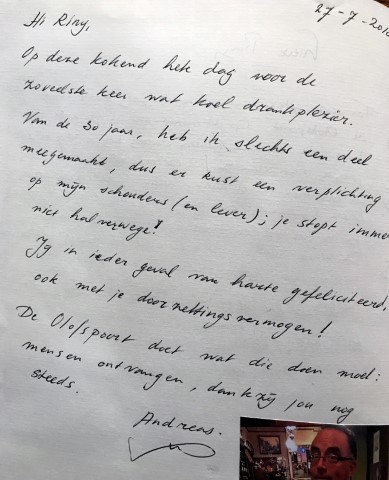 27-7-201
Hi Riny,
Op deze kokend hete dag voor de
zoveelste keer wat koel drankplezier.
Van de 30 jaar, heb ik slechts een deel
meegemaakt, dus er rust een verplichting
op mijn schouders (en lever); je stopt imme
niet halverwege!
Jij in ieder geval van harte gefeliciteerd,
ook met je doorzettingsvermogen!
De Olofspoort doet wat die doen moet:
mensen ontvangen, dankzij jou nog
steeds.
Andreas.